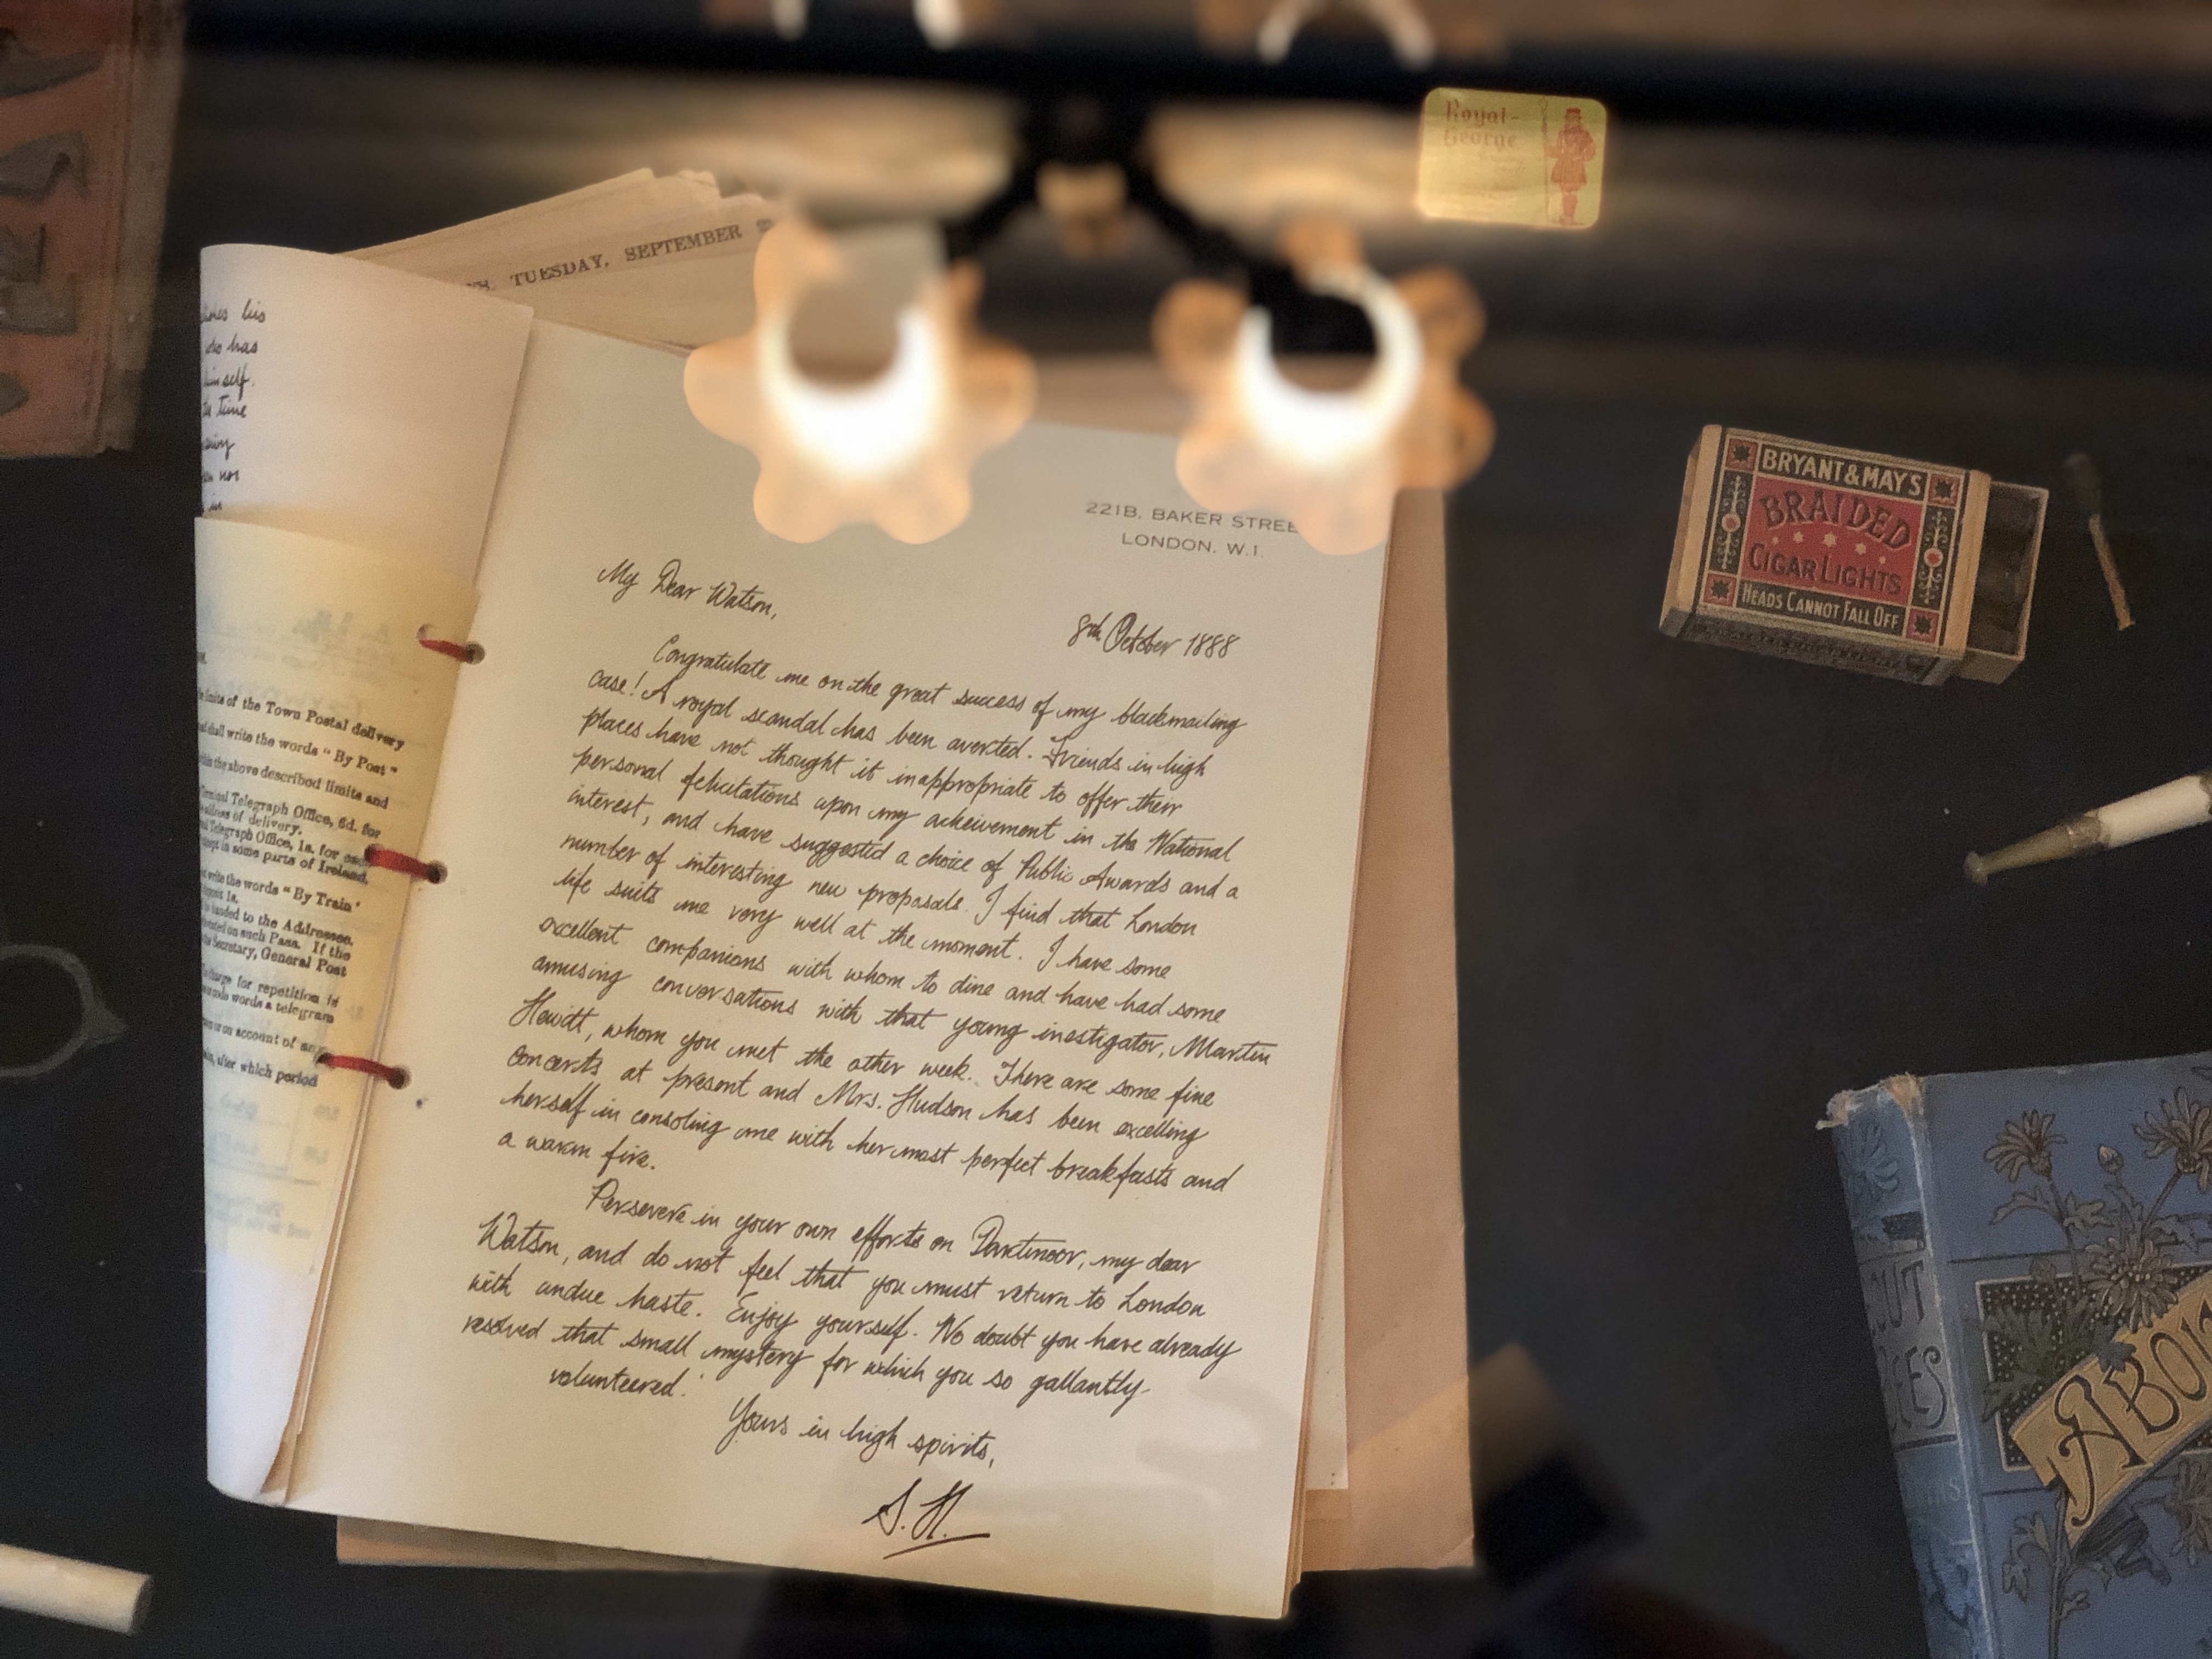 Royal-
George
TUESDAY, SEPTEMBER
his
has
himself.
time
nor
in
limits of the Town Postal delivery
shall write the words "By Post"
the above described limits and
Terminal Telegraph Office, 6d. for
address of delivery.
Telegraph Office, 1s. for
in some parts of Ireland.
write the words "By Train"
1s.
handed to the Addressee.
on such Pass. If the
Secretary, General Post
charge for repetition is
words a telegram
or on account of
after which period
221B, BAKER STREE
LONDON, W.1.
My Dear Watson,
8th October 1888
Congratulate me on the great success of my blackmailing
case! A royal scandal has been averted. Friends in high
places have not thought it inappropriate to offer their
personal felicitations upon my acheivement in the National
interest, and have suggested a choice of Public Awards and a
number of interesting new proposals. I find that London
life suits me very well at the moment. I have some
excellent companions with whom to dine and have had some
amusing conversations with that young inestigator, Martin
Hewitt, whom you met the other week. There are some fine
concerts at present and Mrs. Hudson has been excelling
herself in consoling me with her most perfect breakfasts and
a warm fire.
Persevere in your own efforts on Dartmoor, my dear
Watson, and do not feel that you must return to London
with undue haste. Enjoy yourself. No doubt you have already
resolved that small mystery for which you so gallantly
volunteered.
Yours in high spirits,
S.H.
BRYANT & MAY'S
BRAIDED
CIGAR LIGHTS
HEADS CANNOT FALL OFF
OUT
ABO